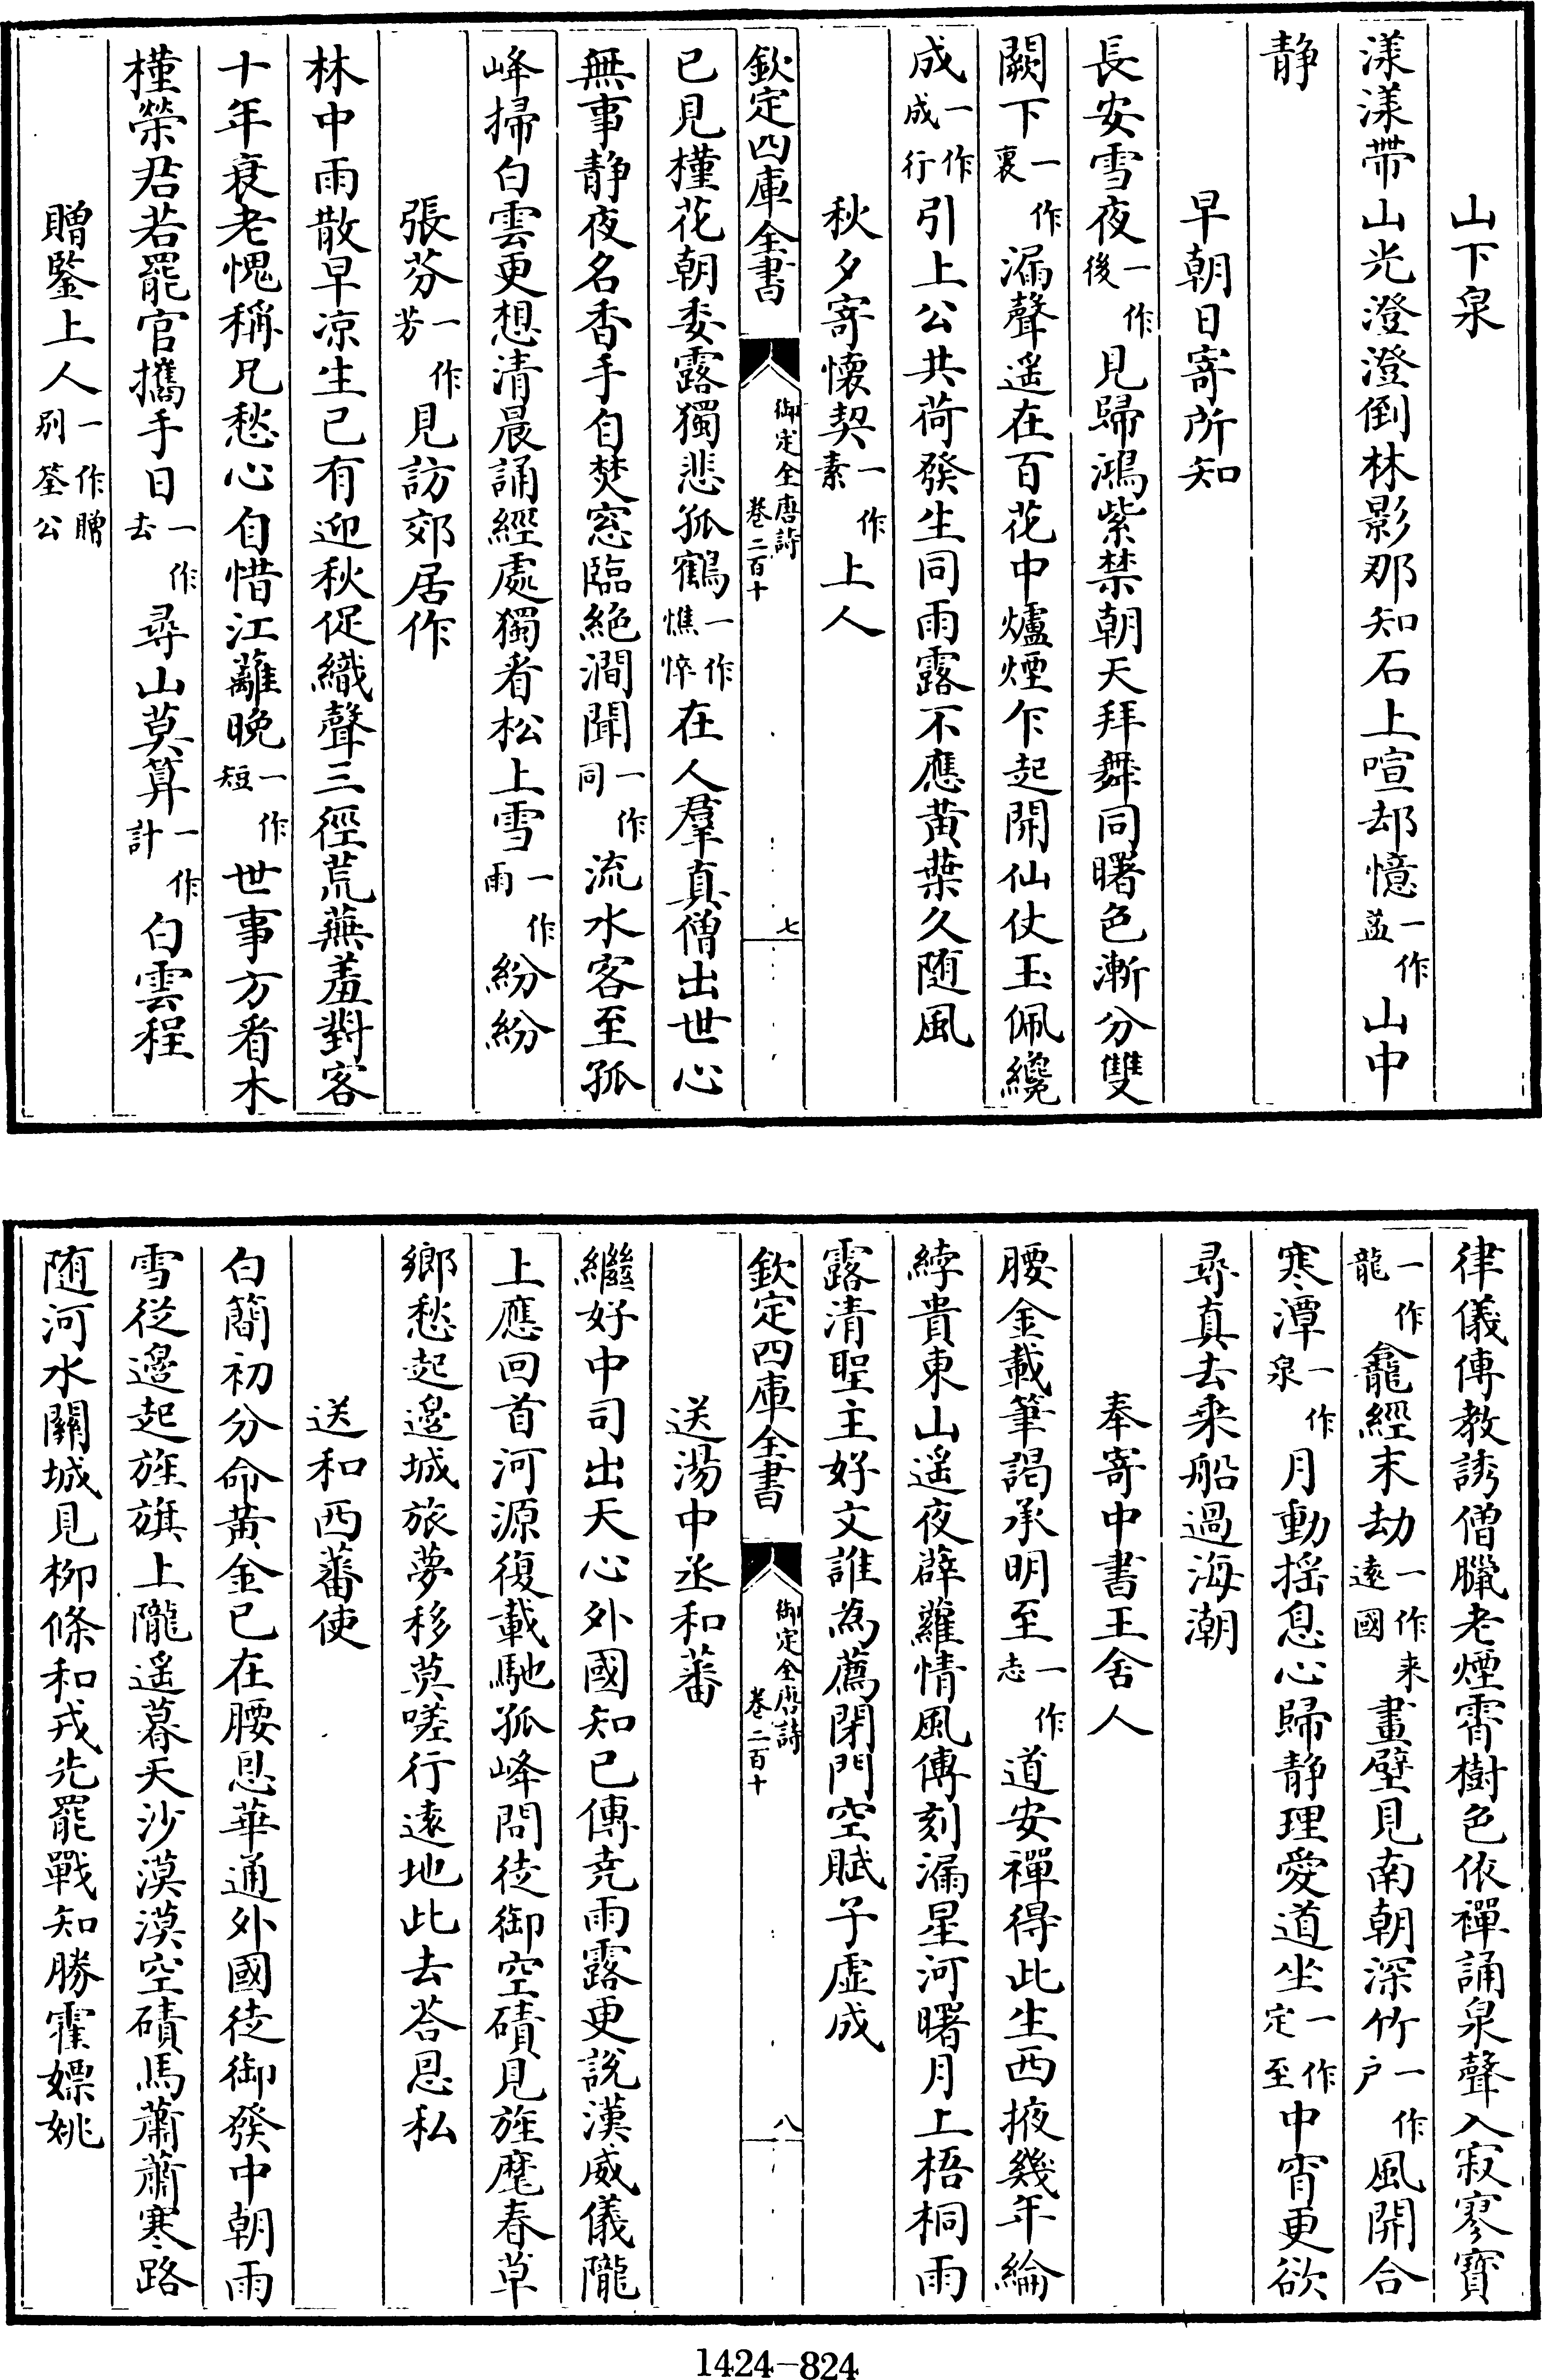 山下泉
漾漾帶山光澄澄倒林影那知石上喧却憶一作益山中
静
早朝日寄所知
長安雪夜一作後見歸鴻紫禁朝天拜舞同曙色漸分雙
闕下一作裏漏聲遥在百花中爐煙乍起開仙仗玉佩纔
成一作成行引上公共荷發生同雨露不應黄葉久随風
秋夕寄懐契一作素上人
欽定四庫全書
御定全唐詩
卷二百十
七
已見槿花朝委露獨悲孤鶴一作憔悴在人羣真僧出世心
無事静夜名香手自焚窓臨絶澗聞一作同流水客至孤
峰掃白雲更想清晨誦經處獨看松上雪一作雨紛紛
張芬一作芳見訪郊居作
林中雨散早凉生已有迎秋促織聲三徑荒蕪羞對客
十年衰老愧稱兄愁心自惜江蘺晚一作短世事方看木
槿榮君若罷官攜手日一作去尋山莫算一作計白雲程
贈鑒上人一作贈別筌公
律儀傳教誘僧臘老煙霄樹色依禪誦泉聲入寂寥寶
一作龍龕經末劫一作来遠國畫壁見南朝深竹一作户風開合
寒潭一作泉月動揺息心歸静理愛道坐一作定至中宵更欲
尋真去乘船過海潮
奉寄中書王舍人
腰金載筆謁承明至一作志道安禪得此生西掖幾年綸
綍貴東山遥夜薜蘿情風傳刻漏星河曙月上梧桐雨
露清聖主好文誰為薦閉門空賦子虚成
欽定四庫全書
御定全唐詩
卷二百十
八
送湯中丞和蕃
繼好中司出天心外國知已傳堯雨露更說漢威儀隴
上應回首河源復載馳孤峰問徒御空磧見旌麾春草
鄉愁起邊城旅夢移莫嗟行遠地此去荅恩私
送和西蕃使
白簡初分命黄金已在腰恩華通外國徒御發中朝雨
雪從邊起旌旗上隴遥暮天沙漠漠空磧馬蕭蕭寒路
随河水關城見柳條和戎先罷戰知勝霍嫖姚
1424-824